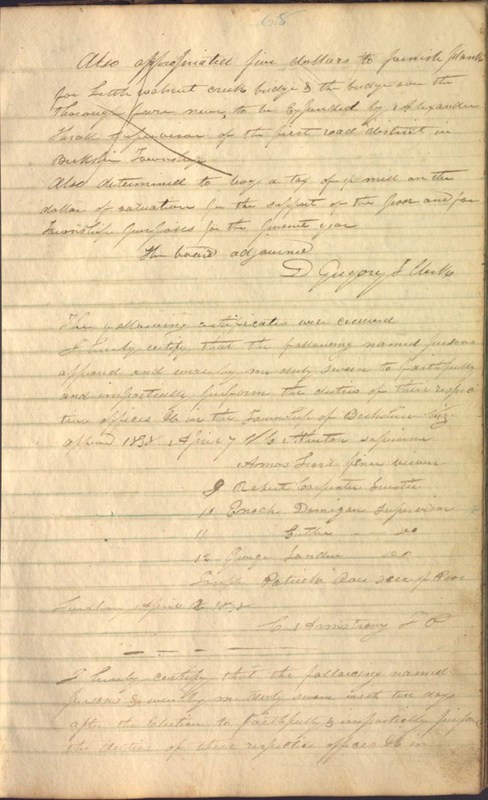 68
Also appropriated five dollars to furnish plank
for Little walnut creek bridge & the bridge over the
thorough fare near, to be Expended by Alexander
Thrall Supervisor of the first road district in
Berkshire Township
Also determined to levy a tax of mill on the
dollar of valuation for the support of the poor and for
Township purposes for the present year
The board adjourned
D Gregory T Clerk
The following certificates were received
I hereby certify that the following named persons
appeared and were by me duly sworn to faithfully
and impartially perform the duties of their respec
tive offices &c in the Township of Berkshire
1838 April 7 supervisor
Amos fence viewer
9 Robert Carpenter Trustee
10 Enoch Domigan Supervisor
11 do
12 George Landon do
Joseph Patrick Over seer of Poor
April 1838
C Armstrong J P
I hereby certify that the following named
persons were by me duly sworn with in ten days
after the Election to faithfully & impartially perform
the duties of there respective offices &c in